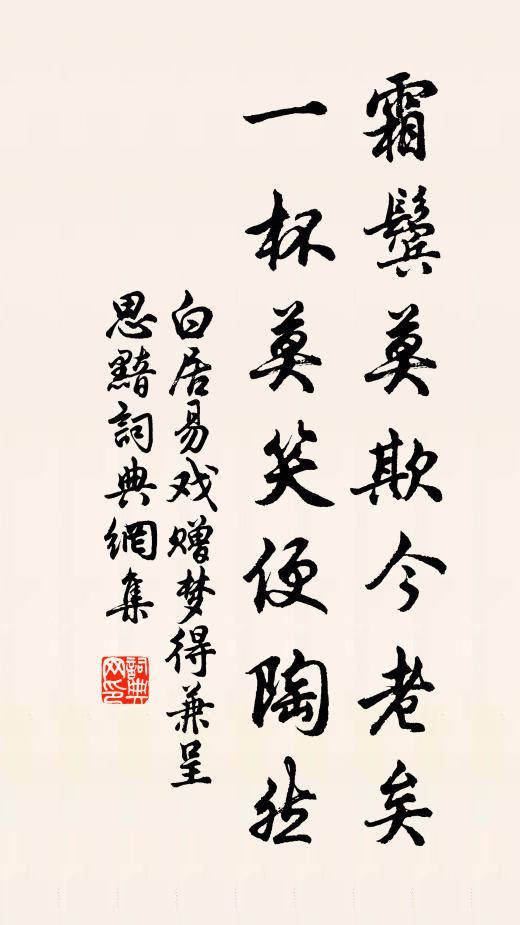 霜鬓莫欺今老矣
一杯莫笑便陶然
白居易戏赠梦得兼呈
思黯詞典網集
詞典
网印